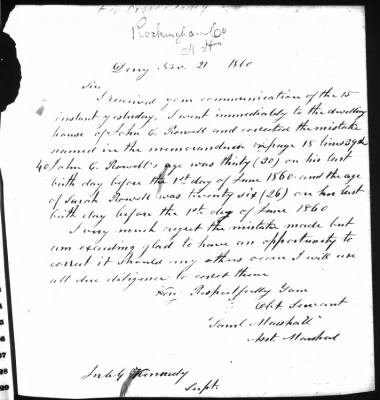 Rockingham Co
N H
Derry Nov. 21 1860
Sir
I received your communication of the 15
instant yesterday. I went immediately to the dwelling
house of John C. Rowell and corrected the mistake
named in the memorandum page 18 lines 39th
40 John C. Rowell's age was thirty (30) on his last
birth day before the 1st day of June 1860 and the age
of Sarah Rowell was twenty six (26) on her last
birth day before the 1st day of June 1860
I very much regret the mistake made but
am exceeding glad to have an opportunity to
correct it should any others occur I will use
all due diligence to correct them
Respectfully Your
Obt. Servant
Saml Marshall
Asst Marshal
Kennedy
Supt.